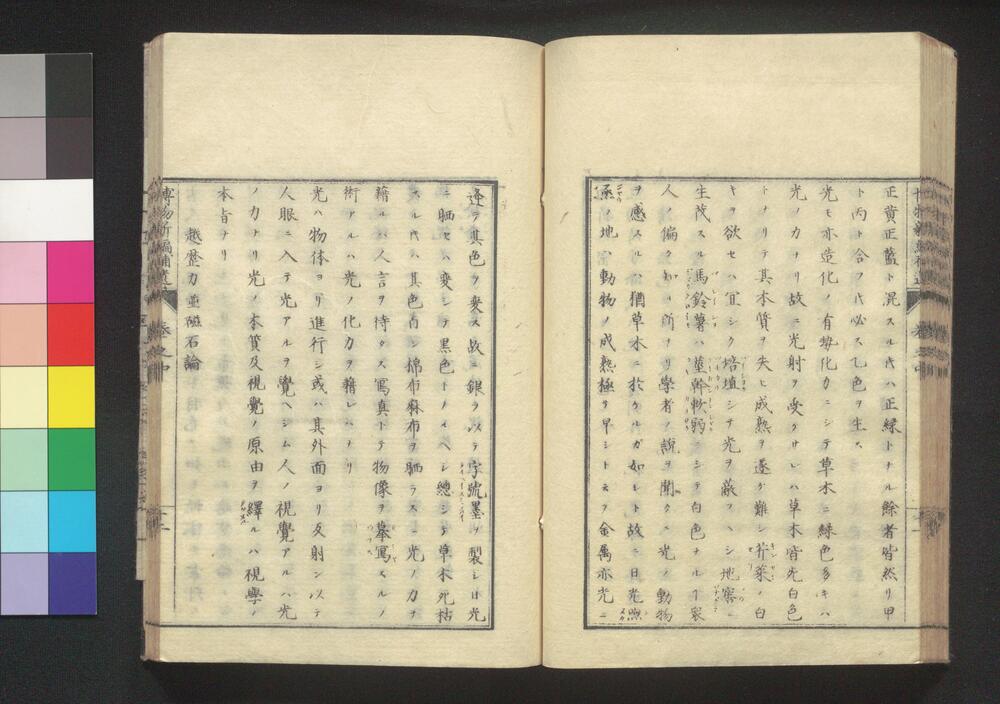 正黄正藍ト混スル片ハ正緑トナル餘者皆然リ甲
ト丙ト合フ片必ス乙色ヲ生ス
光モ亦造化ノ有勢化力ニシテ草木ニ緑色多キハ
光ノカナリ故ニ光射ヲ受ケサレハ草木皆先白色
トナリテ其本質ヲ失ヒ成熟ヲ遂ケ難シ芥菜ノ白
キヲ欲セハ冝シク培埴シテ光ヲ蔽フヘシ地窖ニ
生茂スル馬鈴薯ハ莖幹軟弱ニシテ白色ナルヿ衆
人ノ偏ク知ル所ナリ學者ノ説ヲ聞クニ光ノ動物
ヲ感スルハ猶草木ニ於ケルガ如シト故ニ日光煦
ノ地動物ノ成熟極テ早シト云フ金属亦光ニ
逢テ其色ヲ変ス故ニ銀ヲ以テ字號墨ヲ製シ日光
ニ晒セハ変シテ黒色トナルヘシ總シテ草木死枯
スル片ハ其色白シ棉布麻布ヲ晒ラスニ光ノ力ヲ
藉ルハ人言ヲ待タス寫真トテ物像ヲ摹寫スルノ
術アルハ光ノ化力ヲ藉レハナリ
光ハ物体ヨリ進行シ或ハ其外面ヨリ反射シ以テ
人眼ニ入テ光アルヲ覺ヘシム人ノ視覺アルハ光
ノ力ナリ光ノ本質及視覺ノ原由ヲ繹ルハ視學ノ
本旨ナリ
越歴力並磁石論
博物新編補遺 卷之中